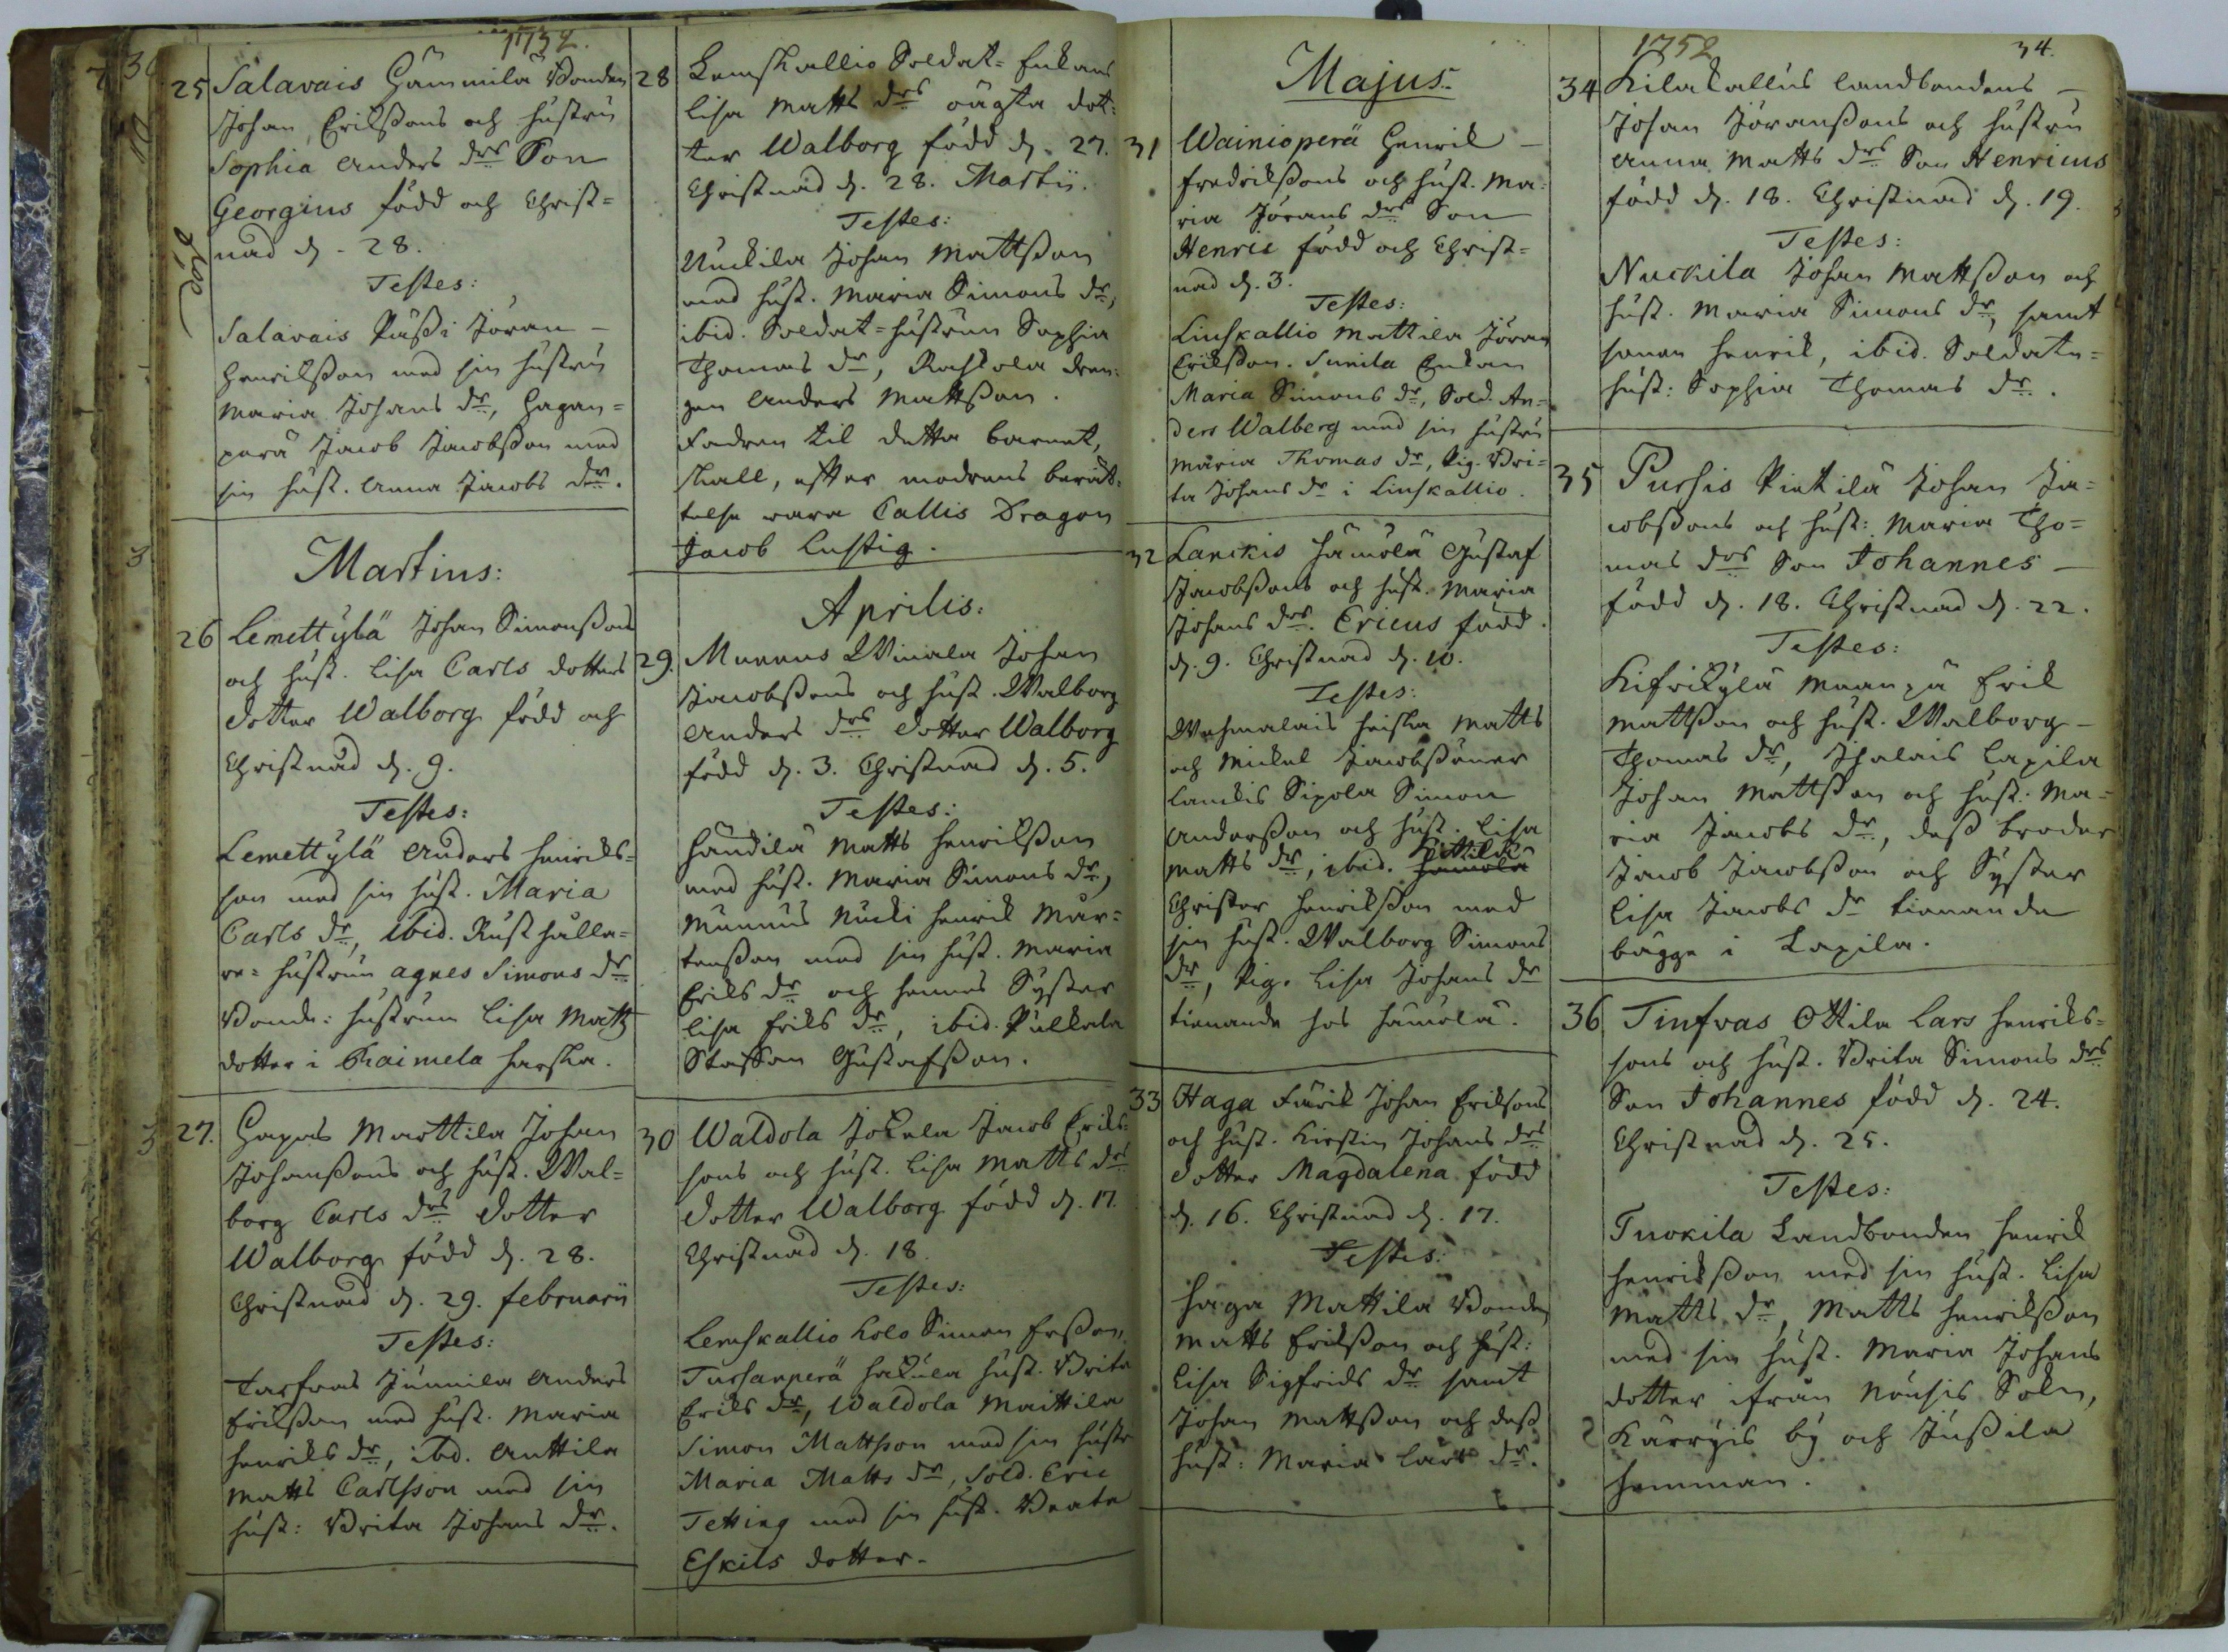 1752.
25 Salavais Gammila Bonden
Johan Erikßons och hustru
Sophia Anders drs Son
Georgius född och Christ=
nad d. 28.
Testes:
Salavais Påßi Jöran
Henrikßon med sin hustru
Maria Johans dr, Hagan=
perä Jacob Jacobßon med
sin hust. Anna Jacobs dr.
Martius:
26 Lemettylä Johan Simonßons
och hust. Lisa Carls dotters
dotter Walborg född och
Christnad d. 9.
Testes:
Lemettylä Anders Henriks=
son med sin hust. Maria
Carls dr, ibid. Rusthålla=
re=hustrun Agnes Simons dr
Bonde=hustrun Lisa Matts
dotter i Raimela Harska.
27. Gapas Marttila Johan
Johanßons och hust. Wal=
borg Carls drs dotter
Walborg född d. 28.
Christnad d. 29. februarii
Testes:
Tarfvas Junnila Anders
Erikßon med hust. Maria
Henriks dr, ibd. Anttila
Matts Carlsson med sin
hust: Brita Johans dr.
28 Lemskallio Soldat=Enkans
Lisa Matts drs oägta dot=
ter Walborg född d. 27.
Christnad d. 28. Martii.
Testes:
Nuckila Johan Mattßon
med hust. Maria Simons dr,
ibid. Soldat=hustrun Sophia
Thomas dr, Raskala dren=
gen Anders Mattßon.
Fadren til detta barnet,
skall, efter modrens berät=
telse vara Callis Dragon
Jacob Lustig.
Aprilis:
29. Munnus Winala Johan
Jacobßons och hust. Walborg
Anders drs dotter Walborg
född d. 3. Christnad d. 5.
Testes:
Händilä Matts Henrikßon
med hust. Maria Simons dr,
Munnus Nucki Henrik Mår=
tenßon med sin hust. Maria
Eriks dr och hennes Syster
Lisa Eriks dr, ibid. Pulkala
Staffan Gustafßon.
30 Waldola Jokela Jacob Eriks=
sons och hust. Lisa Matts drs
dotter Walborg född d. 17.
Christnad d. 18.
Testes:
Lemskallio Kolo Simon Erßon,
Tursanperä Hakula hust. Brita
Eriks dr, Waldola Maittila
Simon Mattsson med sin hustr
Maria Matts dr, Sold. Eric
Tetting med sin hust. Beata
Eskils dotter.
Majus.
31 Wainioperä Henrik
Fredrikßons och hust. Ma=
ria Jörans drs Son
Henric född och Christ=
nad d. 3.
Testes:
Linskallio Mattila Jöran
Erikßon. Sunila Enkan
Maria Simons dr, Sold. An=
ders Walberg med sin hustru
Maria Thomas dr, Pig. Bri=
ta Johans dr i Linskallio.
32 Lanckis Hämölä Gustaf
Jacobßons och hust. Maria
Johans drs. Ericus född
d. 9. Christnad d. 10.
Testes:
Wehmalais Heicka Matts
och Mickel Jacobßöner
Lanckis Sipola Simon
Anderßon och hust. Lisa
Matts dr, ibid. Hämölä Pittilä
Christer Henrikßon med
sin hust. Walborg Simons
dr, Pig. Lisa Johans dr
tienande hos Hämölä.
33 Haga Färik Johan Eriksons
och hust. Kirstin Johans drs
dotter Magdalena född
d. 16. Christnad d. 17.
Testes:
Haga Mattila Bonden
Matts Erikßon och hust:
Lisa Sigfrids dr samt
Johan Mattßon och deß
hust: Maria Lars dr.
1752
34.
34 Kilakallus Landbondens
Johan Jöranßons och hustru
Anna Matts drs Son Henricus
född d. 18. Christnad d. 19.
Testes:
Nuckila Johan Mattßon och
hust. Maria Simons dr, samt
sonen Henrik, ibid. Soldate=
hust: Sophia Thomas dr.
35 Pursis Pietilä Johan Ja=
cobßons och hust: Maria Tho=
mas drs Son Johannes
född d. 18. Christnad d. 22.
Testes:
Kifrikylä Maanpä Erik
Mattßon och hust. Walborg
Thomas dr, Ihalais Lapila
Johan Mattßon och hust: Ma=
ria Jacobs dr, deß broder
Jacob Jacobßon och Syster
Lisa Jacobs dr tienande
bägge i Lapila.
36 Tinfvas Ottila Lars Henriks=
sons och hust. Brita Simons drs
Son Johannes född d. 24.
Christnad d. 25.
Testes:
Tuokila Landbonden Henrik
Henrikßon med sin hust. Lisa
Matts dr, Matts Henrikßon
med sin hust. Maria Johans
dotter ifrån Nousis Sokn,
Kärrÿis bÿ och Jußila
hemman.